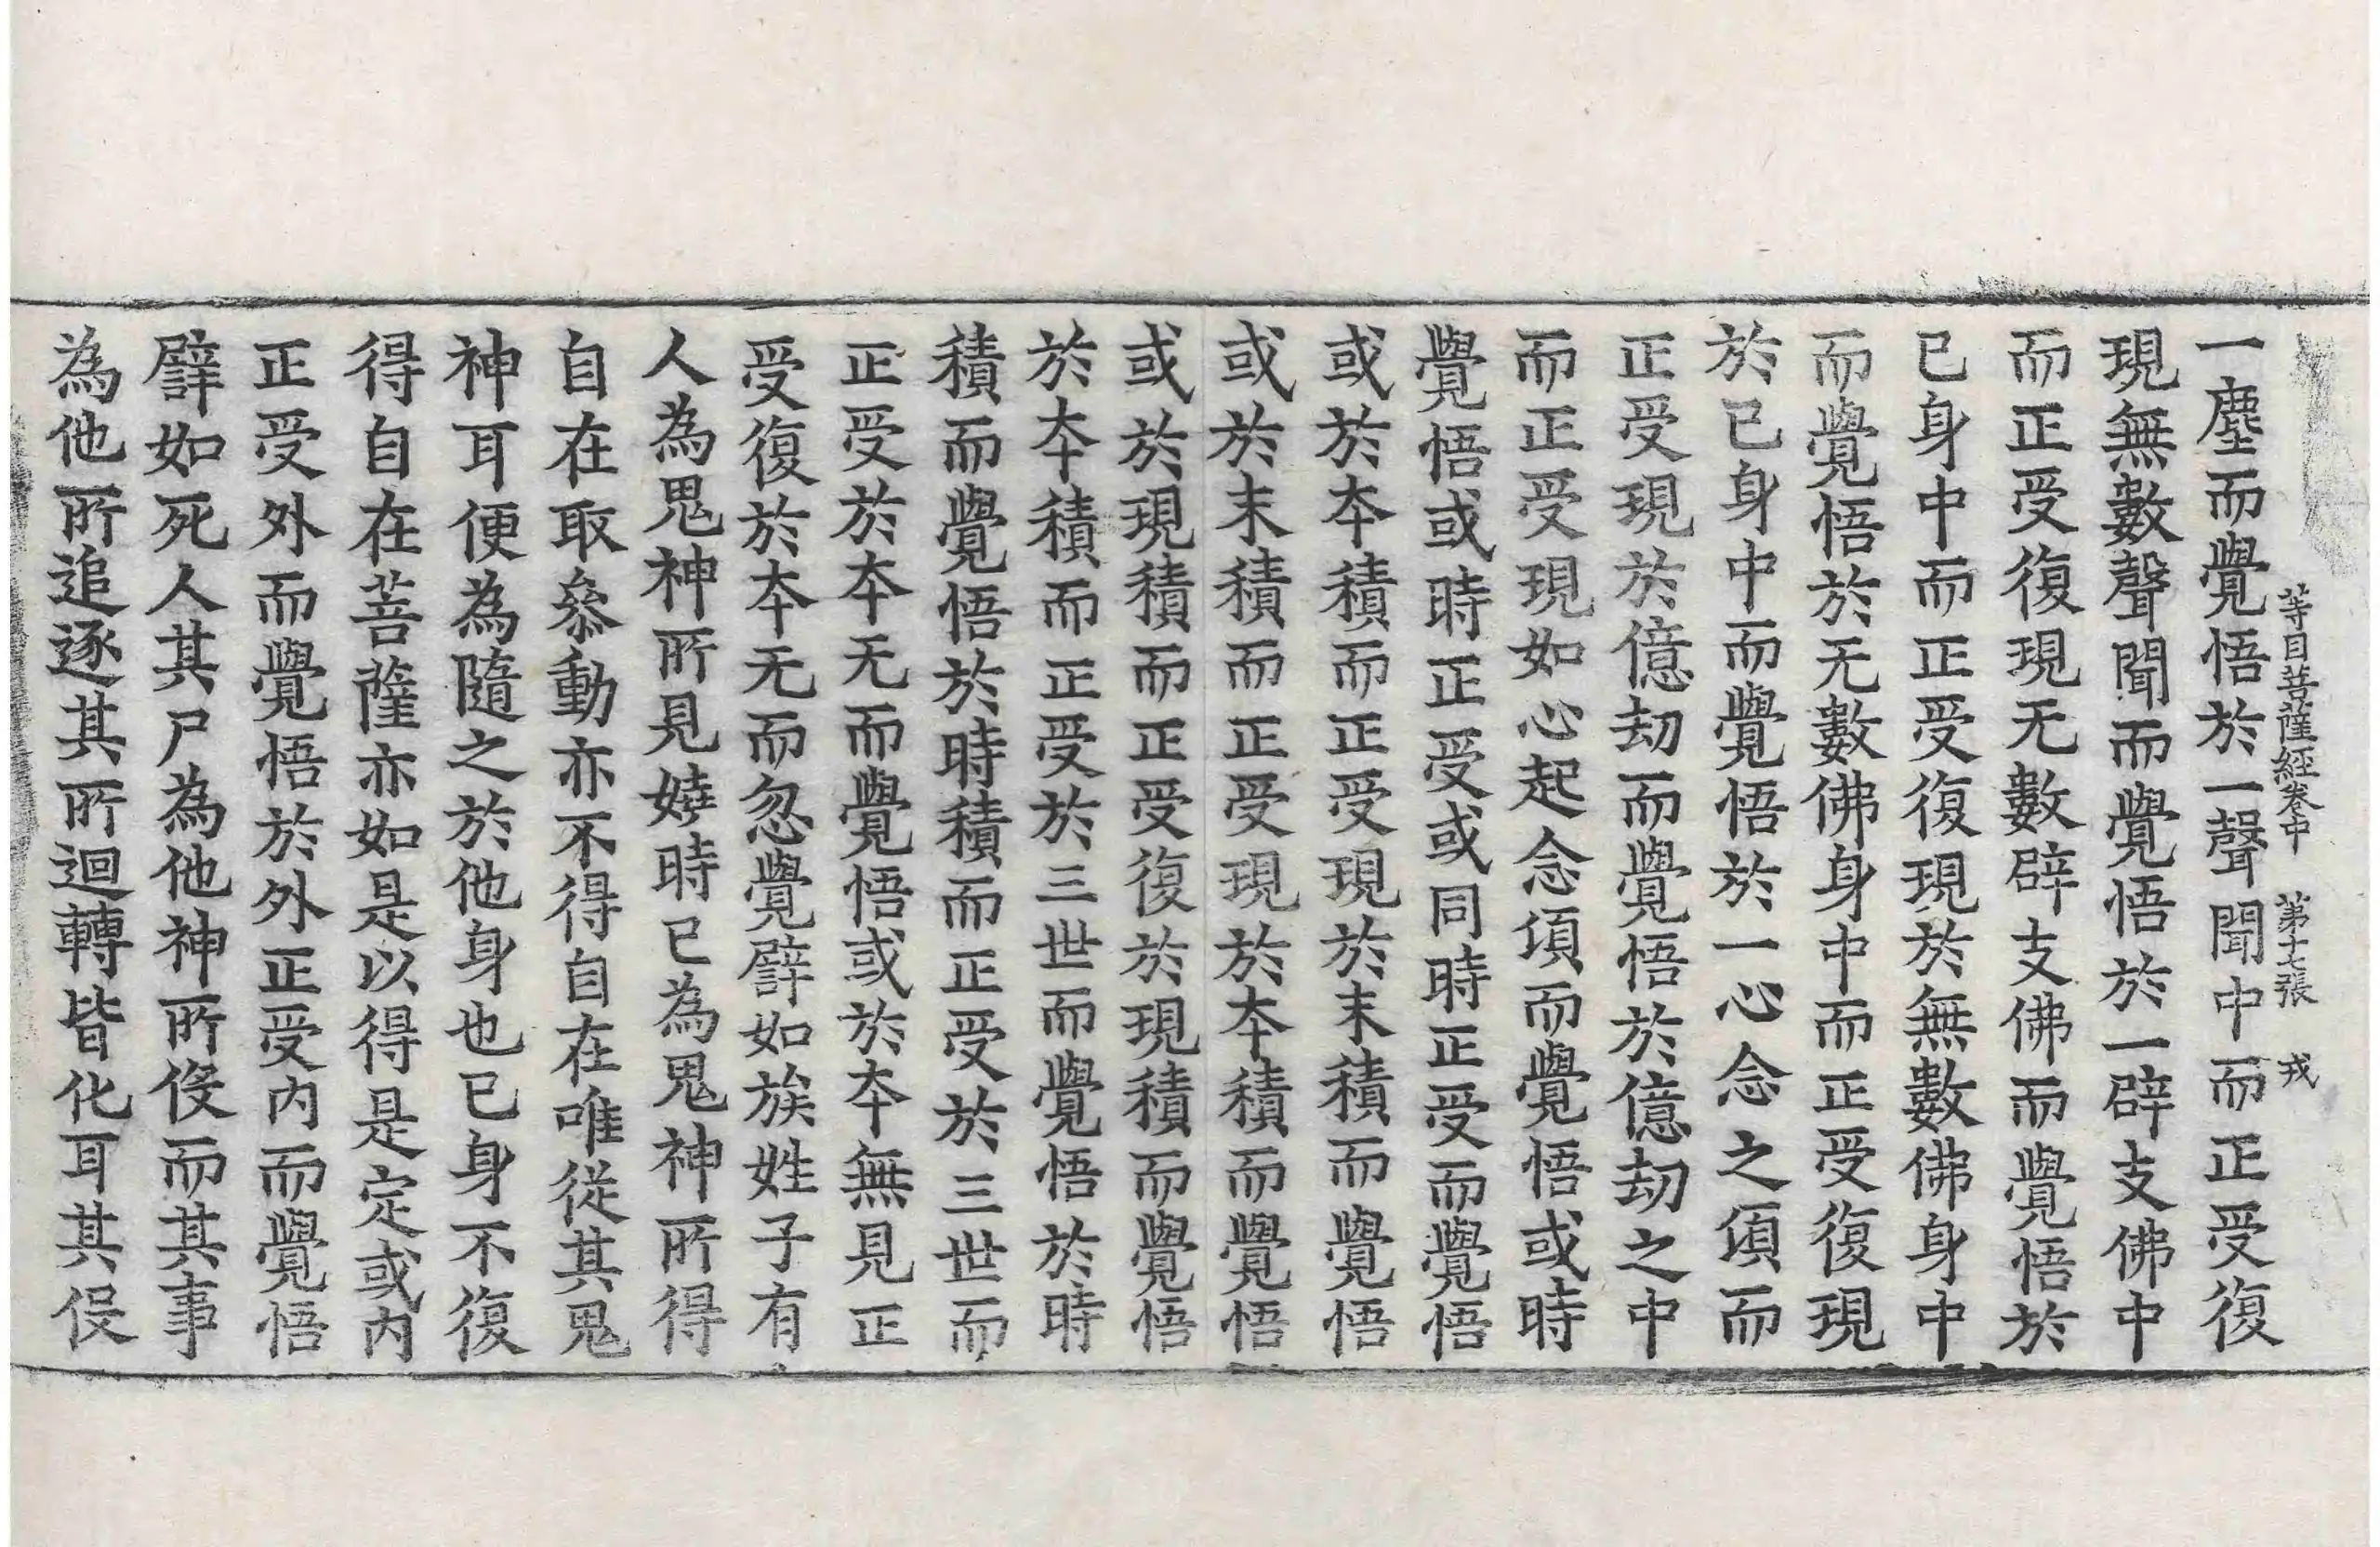 等目菩薩經卷中　第十七張　戎
一塵而覺悟於一聲聞中而正受復
現無數聲聞而覺悟於一辟支佛中
而正受復現无數辟支佛而覺悟於
已身中而正受復現於無數佛身中
而覺悟於无數佛身中而正受復現
於已身中而覺悟於一心念之湏而
正受現於億劫而覺悟於億劫之中
而正受現如心起念湏而覺悟或時
覺悟或時正受或同時正受而覺悟
或於夲積而正受現於末積而覺悟
或於末積而正受現於夲積而覺悟
或於現積而正受復於現積而覺悟
於夲積而正受於三世而覺悟於時
積而覺悟於時積而正受於三世而
正受於夲无而覺悟或於夲無見正
受復於夲无而忽覺譬如族姓子有
人為鬼神所見嬈時已為鬼神所得
自在取叅動亦不得自在唯從其鬼
神耳便為隨之於他身也已身不復
得自在菩薩亦如是以得是定或内
正受外而覺悟於外正受内而覺悟
譬如死人其尸為他神所伇而其事
為他所追逐其所迴轉皆化耳其伇